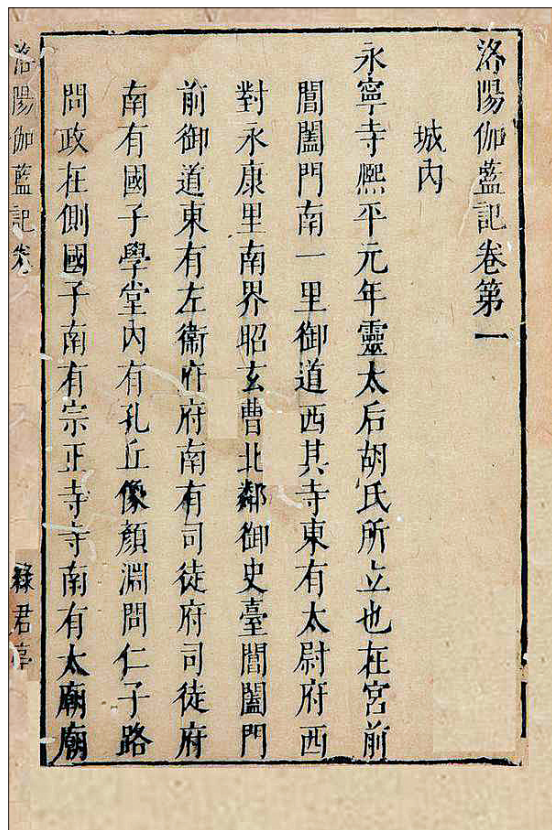 洛陽伽藍記卷第一
城內
永寧寺熙平元年靈太后胡氏所立也在宮前
閶闔門南一里御道西其寺東有太尉府西
對永康里南界昭玄曹北鄰御史臺閶闔門
前御道東有左衞府府南有司徒府司徒府
南有國子學堂內有孔丘像顏淵問仁子路
問政在側國子南有宗正寺寺南有太廟廟
洛陽伽藍記卷
綠君亭